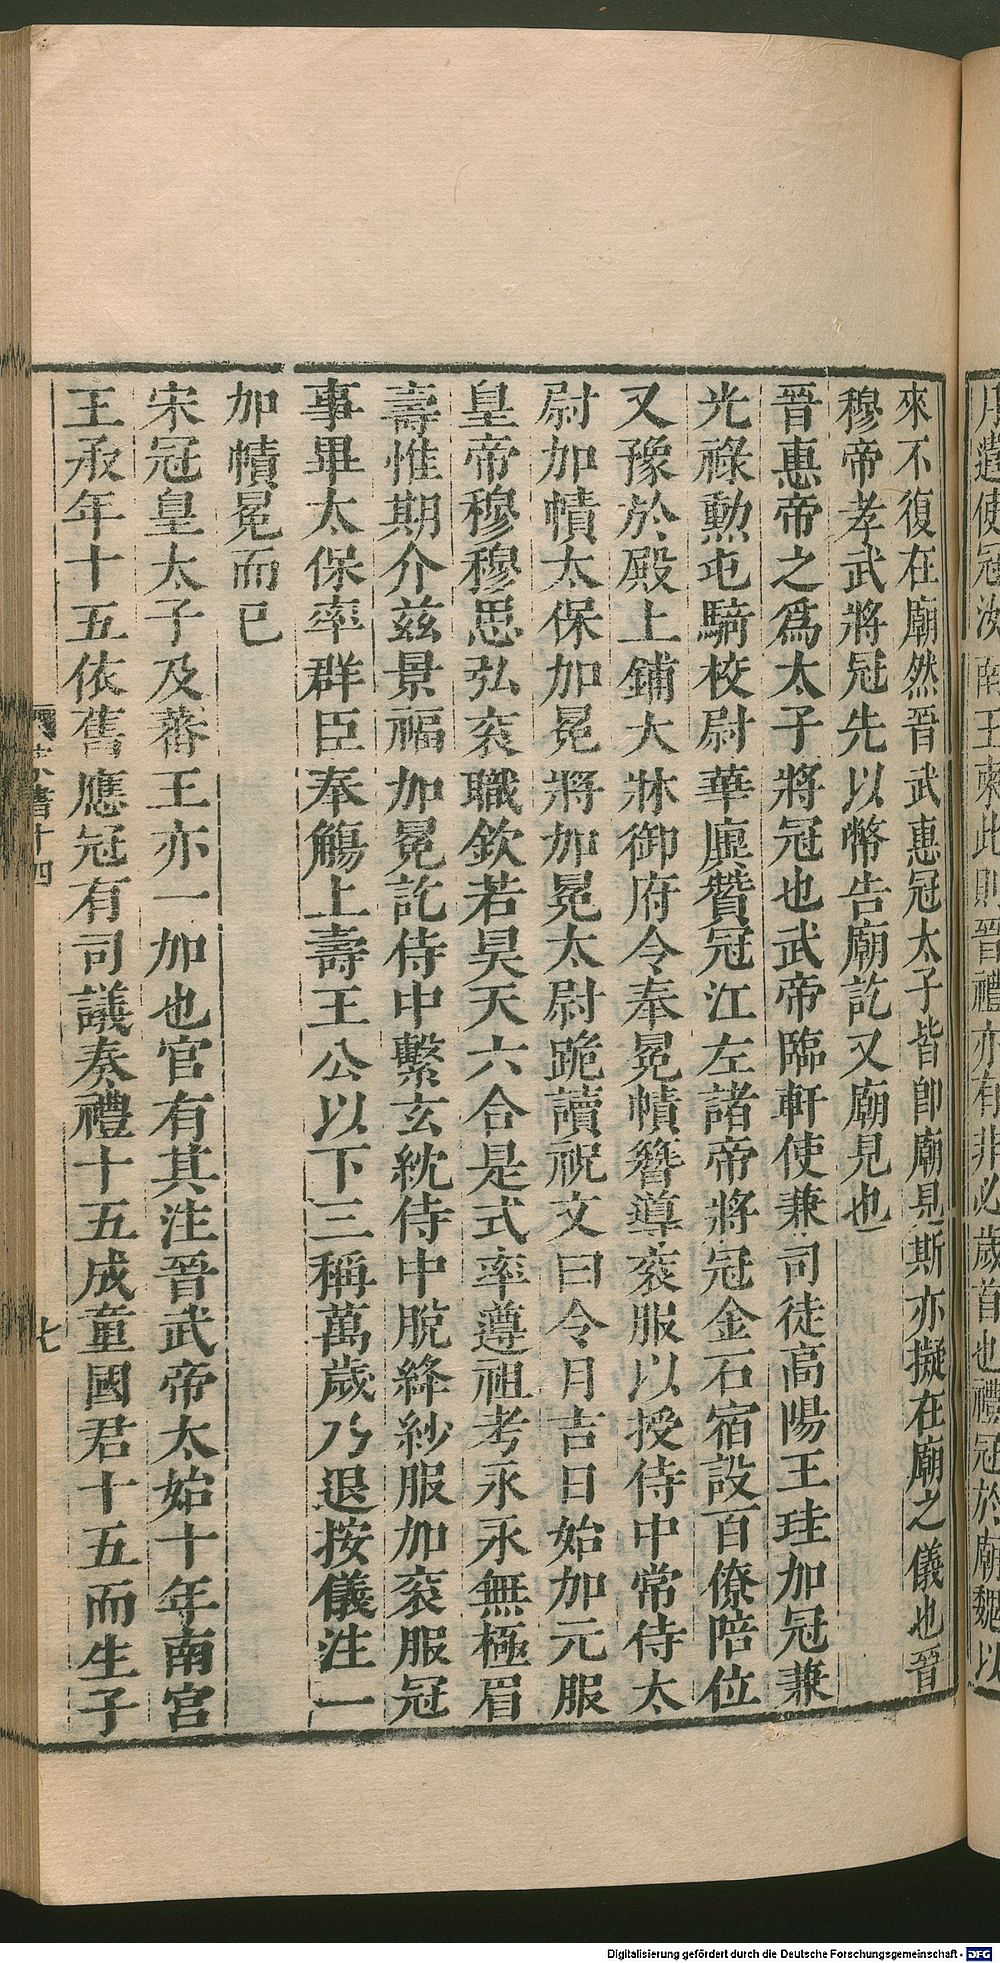 月遣使冠汝南王柬此則晉禮亦有非必歲首也禮冠於廟魏以
來不復在廟然晉武惠冠太子皆卽廟見斯亦擬在廟之儀也晉
穆帝孝武將冠先以幣告廟訖又廟見也
晉惠帝之爲太子將冠也武帝臨軒使兼司徒高陽王珪加冠兼
光祿勳屯騎校尉華廙贊冠江左諸帝將冠金石宿設百僚陪位
又豫於殿上鋪大牀御府令奉冕幘簪導衮服以授侍中常侍太
尉加幘太保加冕將加冕太尉跪讀祝文曰令月吉日始加元服
皇帝穆穆思弘衮職欽若昊天六合是式率遵祖考永永無極眉
壽惟期介兹景福加冕訖侍中繫玄紞侍中脫絳紗服加衮服冠
事畢太保率群臣奉觴上壽王公以下三稱萬歲乃退按儀注一
加幘冕而已
宋冠皇太子及蕃王亦一加也官有其注晉武帝太始十年南宮
王承年十五依舊應冠有司議奏禮十五成童國君十五而生子
書十四
七
Digitalisierung gefördert durch die Deutsche Forschungsgemeinschaft - DFG